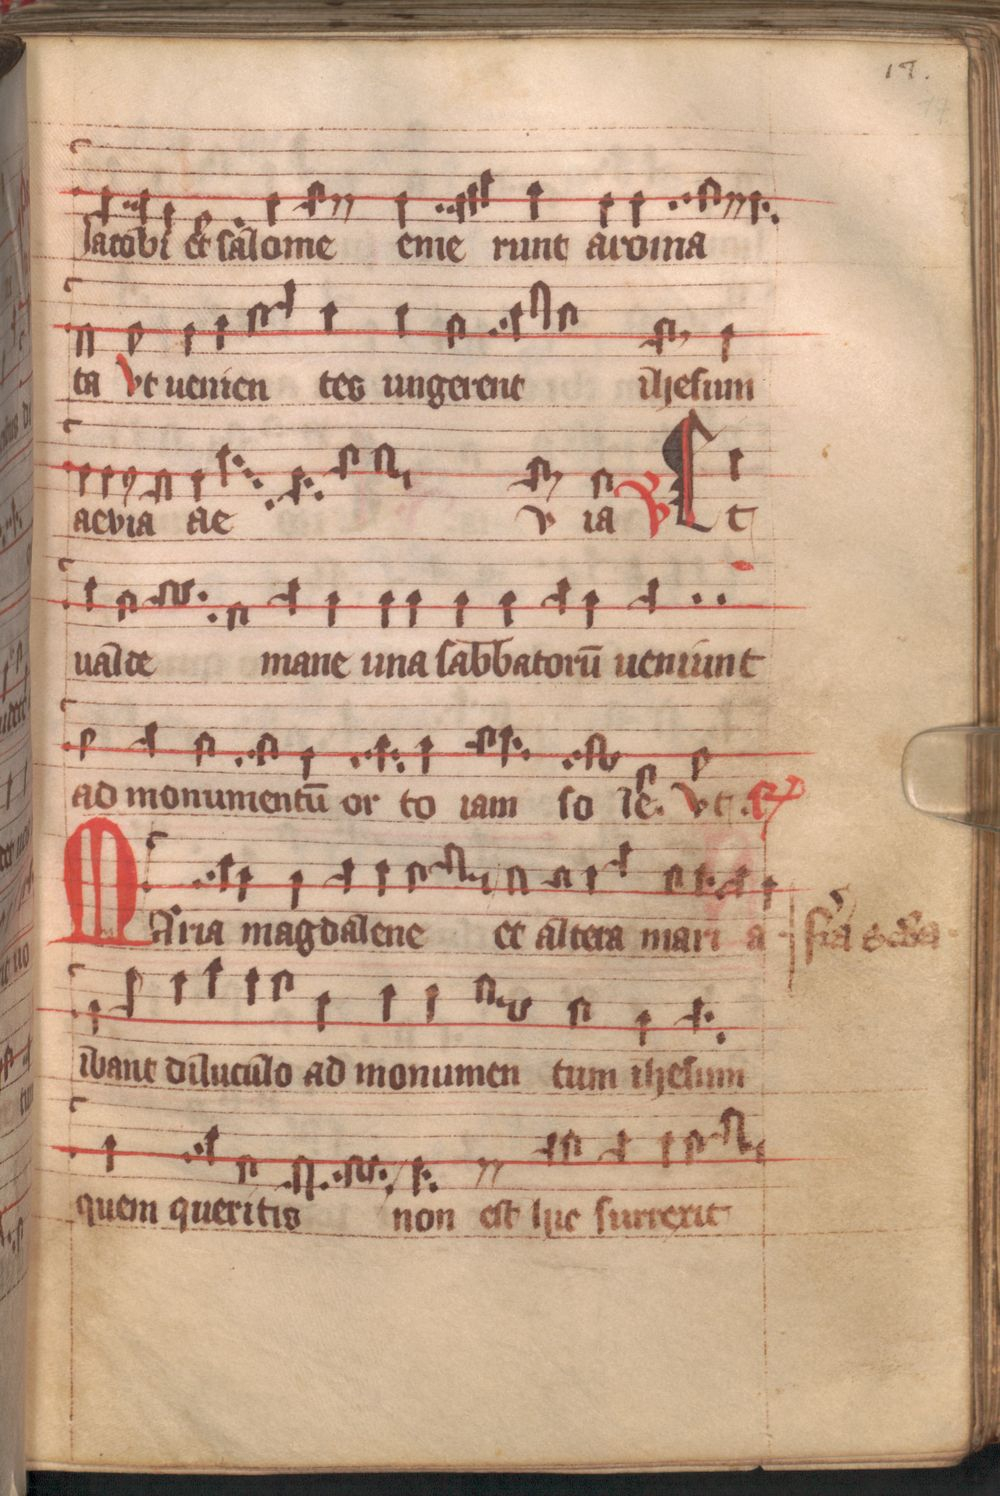 17.
17
Jacobi et salome eme runt aroma
ta Vt uenien tes ungerent ihesum
aevia ae v ia V Et
ualde mane una sabbatorū ueniunt
ad monumentū or to iam so le. Vt.
Maria magdalene et altera mari a
ibant diluculo ad monumen tum ihesum
quem queritis non est hic surrexit